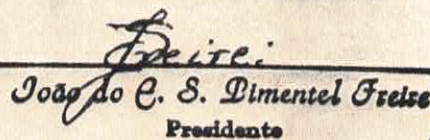 Freire
João do C. S. Pimentel Freire
Presidente